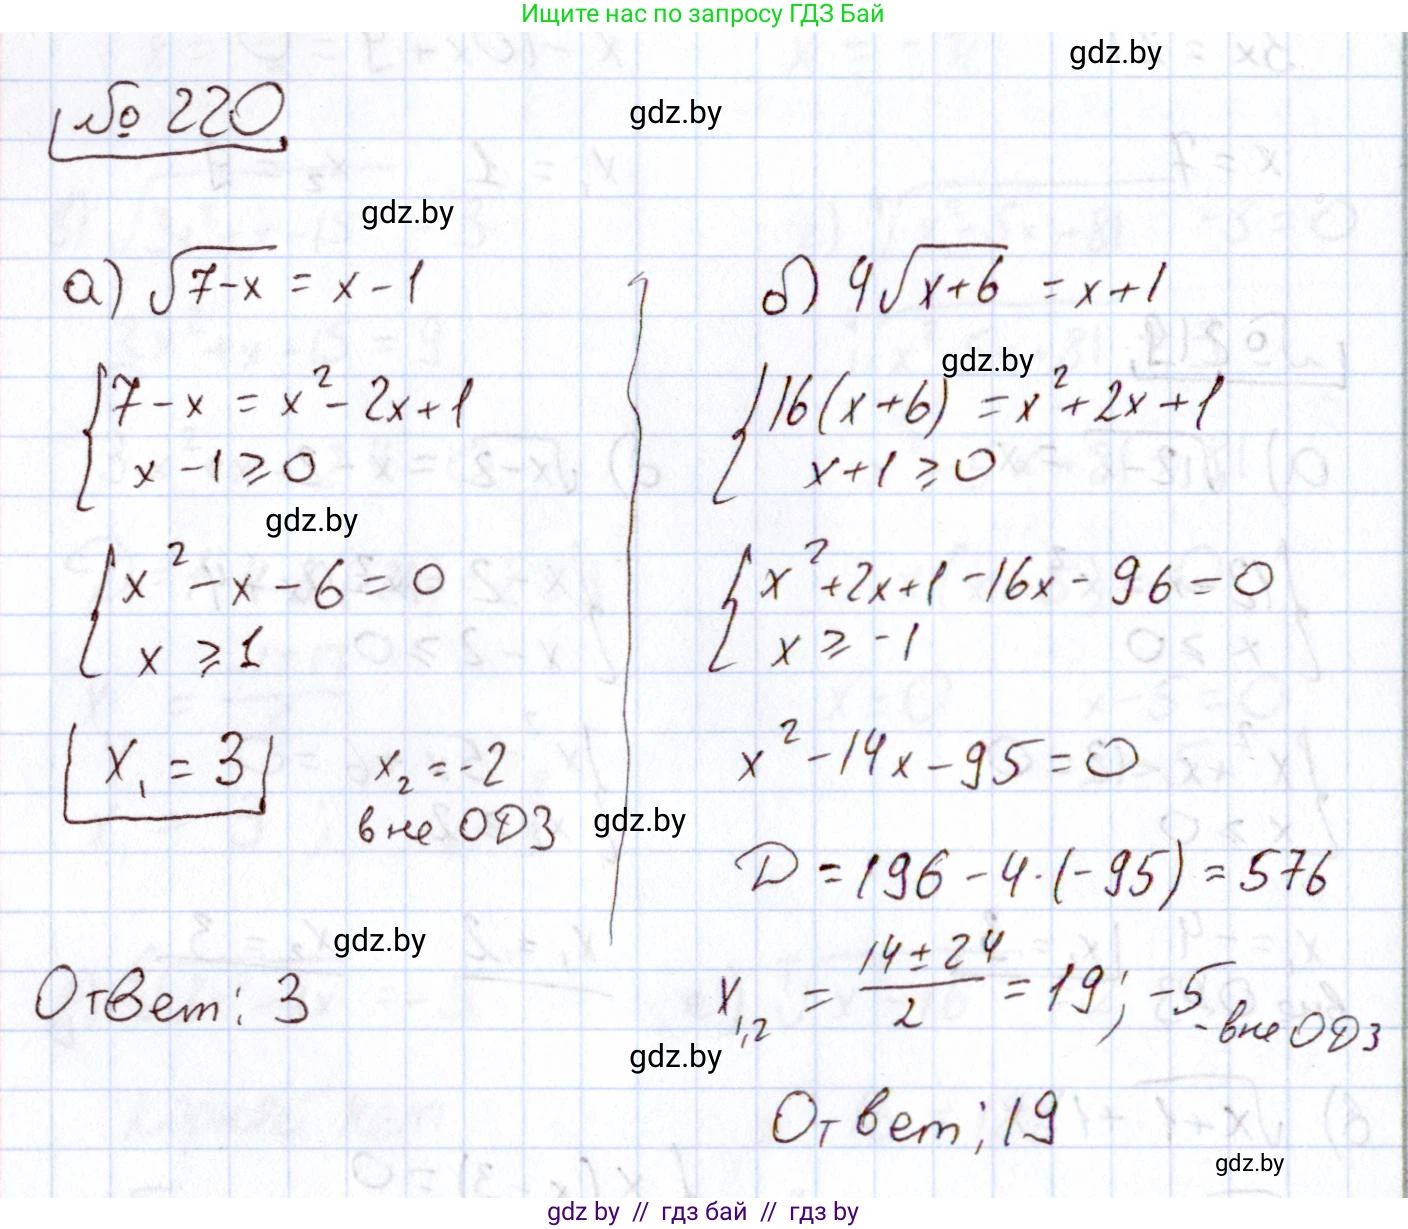 Ищите нас по запросу ГДЗ Бай
gdz.by
gdz.by
№ 220
gdz.by
а) √(7-x) = x - 1
{ 7 - x = x² - 2x + 1
x - 1 ⩾ 0
gdz.by
{ x² - x - 6 = 0
x ⩾ 1
x₁ = 3 x₂ = -2
вне ОДЗ
gdz.by
gdz.by
Ответ: 3
б) 4√(x+6) = x + 1
gdz.by
{ 16(x+6) = x² + 2x + 1
x + 1 ⩾ 0
{ x² + 2x + 1 - 16x - 96 = 0
x ⩾ -1
x² - 14x - 95 = 0
D = 196 - 4·(-95) = 576
x₁,₂ = (14 ± 24)/2 = 19; -5 - вне ОДЗ
gdz.by
Ответ: 19
gdz.by
gdz by // гдз бай // гдз by